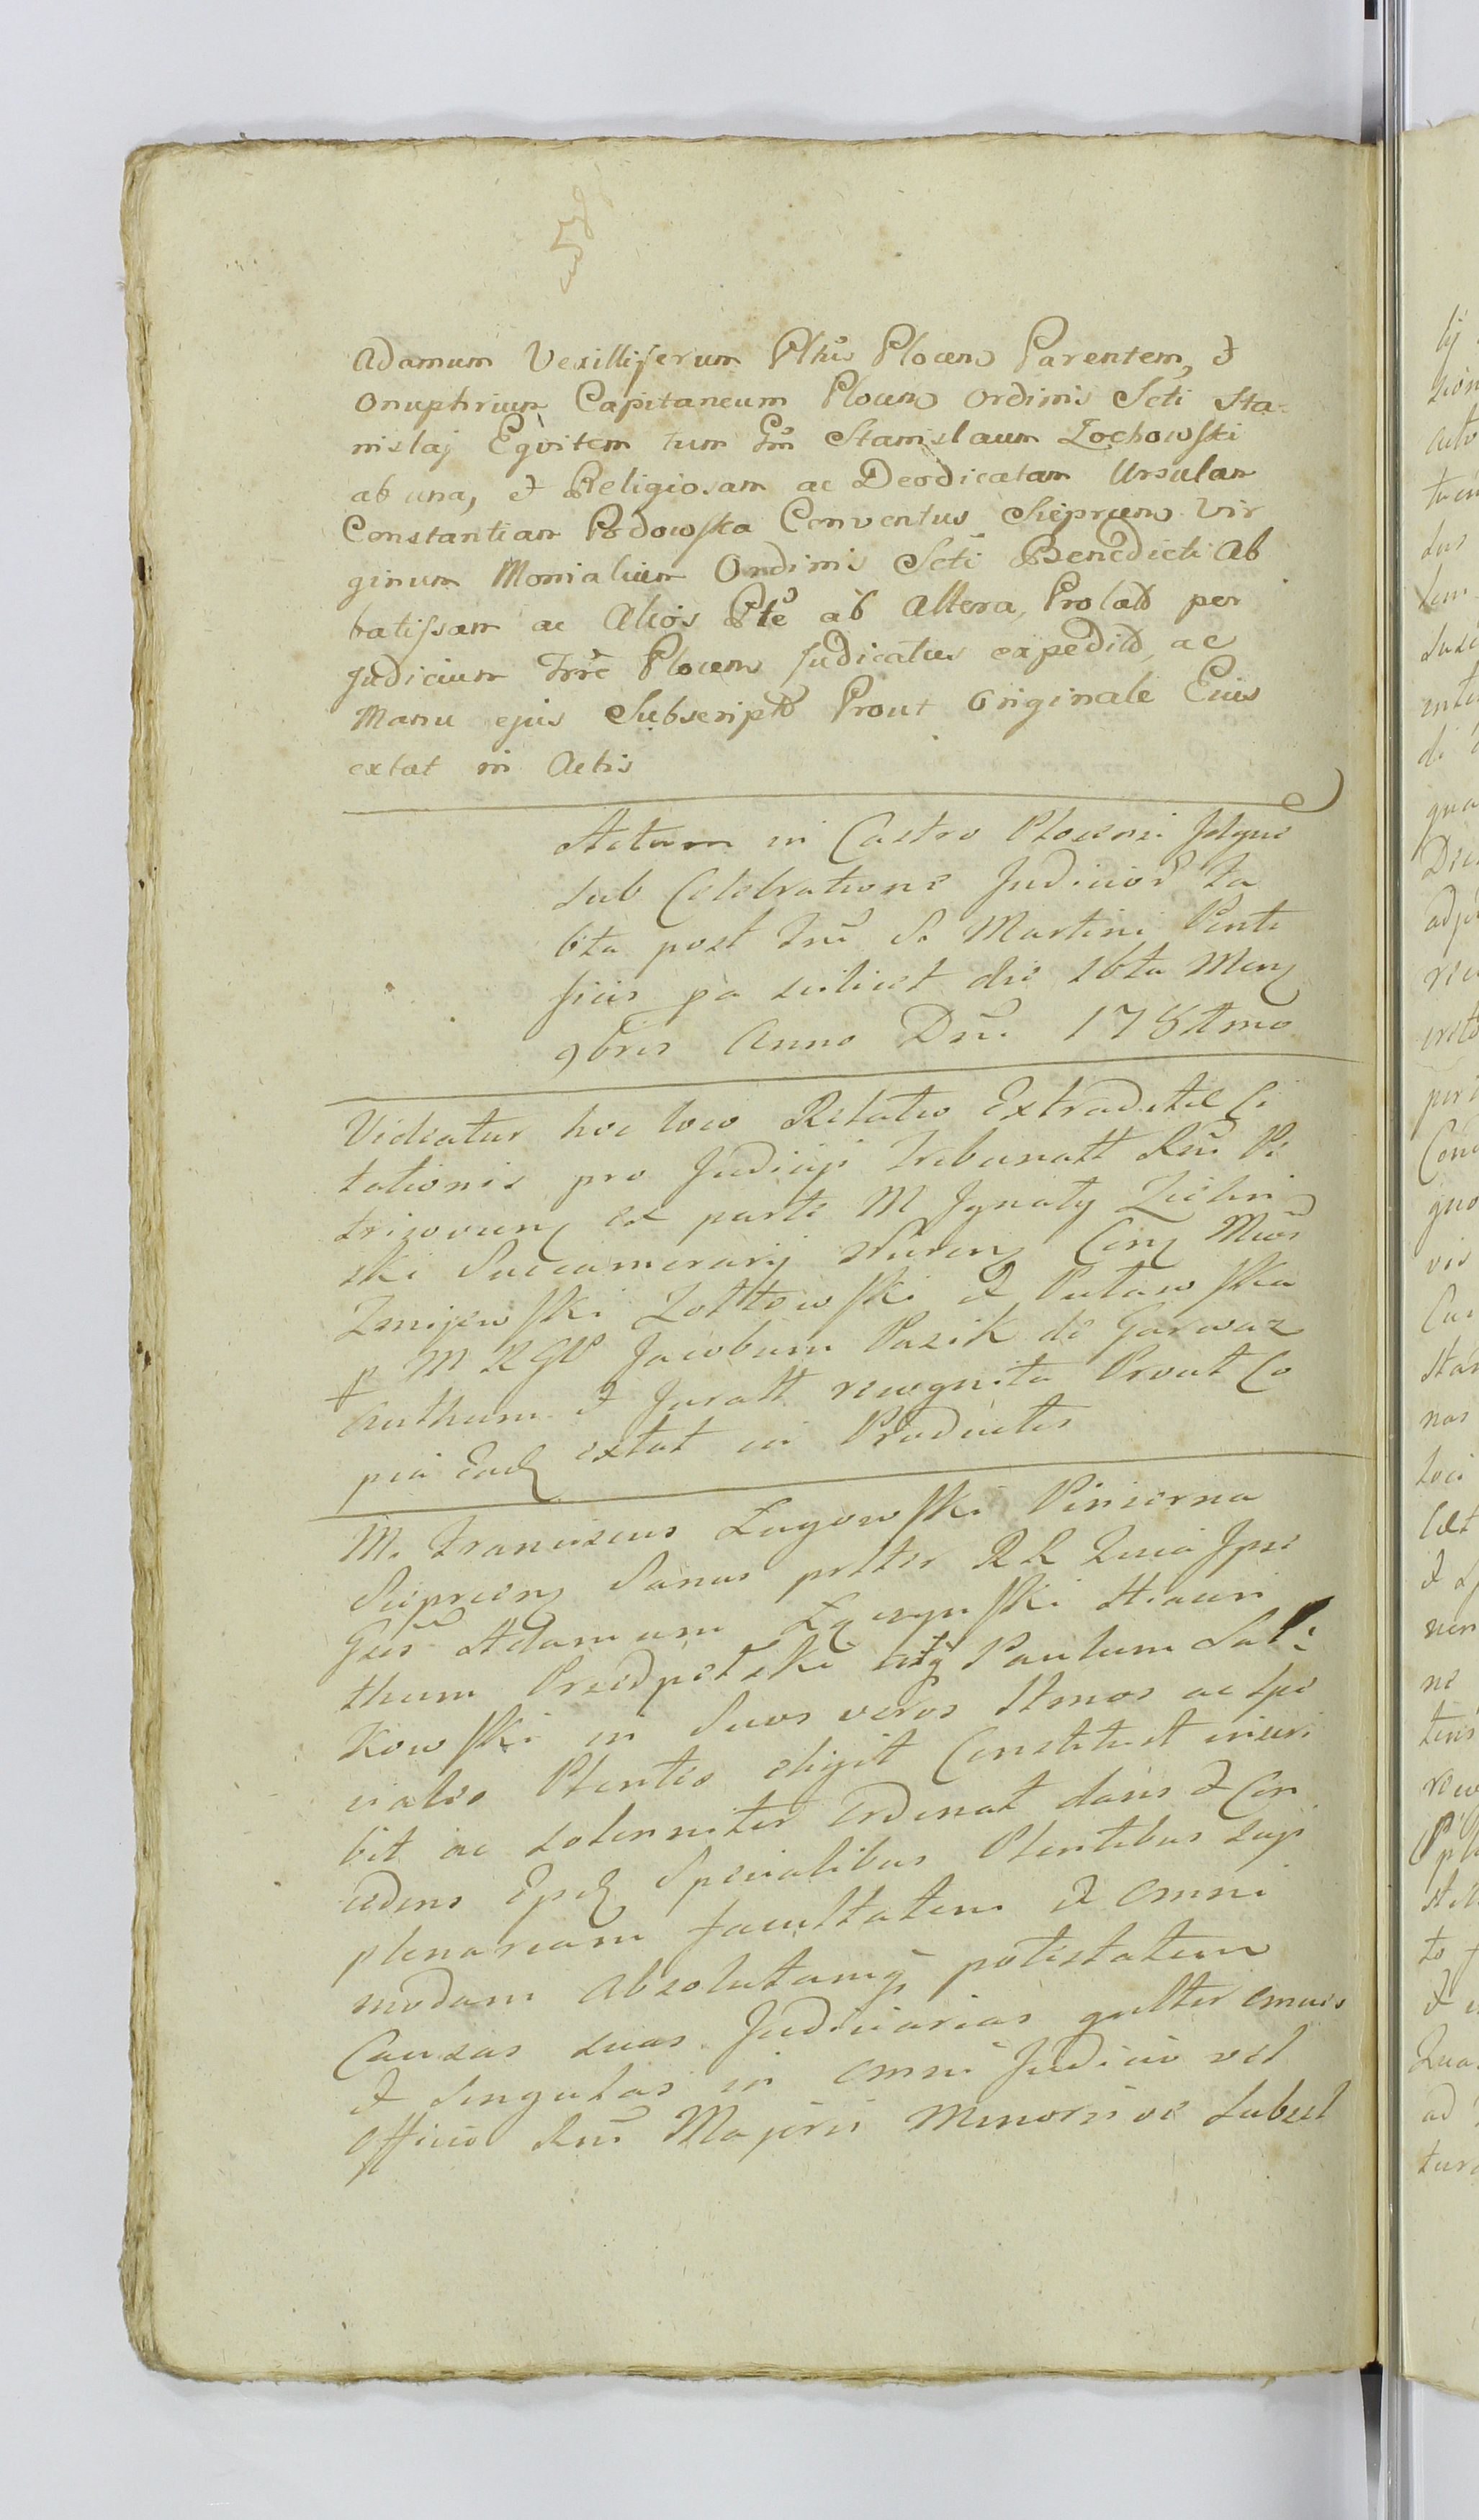 Adamum Vexilliferum Pltus Plocens Parentem, et
Onuphrium Capitaneum Plocens Ordinis Scti Sta-
nislaj Eqvitem tum Gm Stanislaum Zochowski
ab una, et Religiosam ac Deodicatam Ursulan
Constantian Podowska Conventus Sieprcens Vir
ginum Monialium Ordinis Scti Benedicti Ab
batissam ac Alios Pte ab Altera, Prolato per
Judicium Trre Plocens Judicatus expedito, ac
Manu ejus Subscripto Prout Originale Eius
extat in Actis
Actum in Castro Plocensi Idque
sub Celebratione Judicior
bta post Fm S. Martini Ponti
ficis pa scilicet die 16ta Mens
9bris Anno Dni
Videatur hoc loco Relatio Extraditae Ci
tationis pro Judicijs Tribunatt Rni Pe
tricoviens ex parte M Ignatij Zielin
ski Succamerarij Nurens Cens Mcos
Zmijewski Zołtowski et Putawska
p M R GP Jacobum Pazik de Garwaz
Authum et Juratt recognita Prout Co
pia Ead extat in Productis
M. Franciscus Ługowski Pincerna
Sieprcens Sanus prltis RR Quia Ipse
Gsus Adamum Łączynski Hiacin
thum Przedpełski atq Paulum Suli
kowski in Suos veros Ltmos ac Spe
ciales Plentes eligit Constituit inscri
bit ac solenniter Ordinat dans et Con
cedens Ejsd Specialibus Plentibus suis
plenariam facultatem et omni
modam absolutamq potestatem
Causas suas Judiciarias gnlter omnes
et Singulas in omni Judicio vel
Officio Rni Majoris Minorisve Subsel